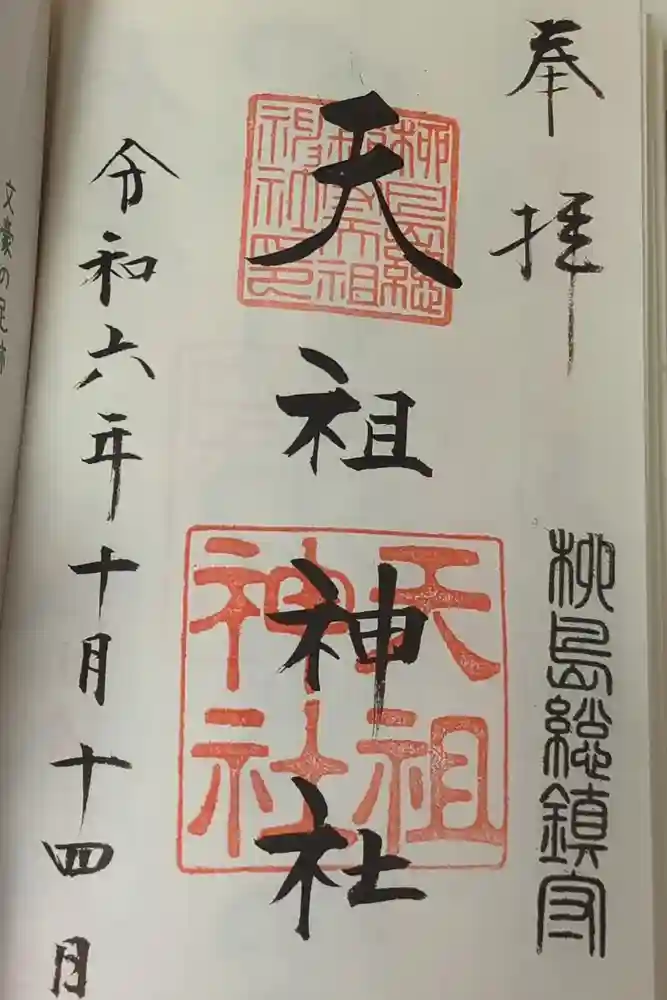 奉拝
柳島総鎮守
天祖神社
柳島総
鎮守天祖
神社印
天祖
神社
令和六年十月十四月
文豪の足跡